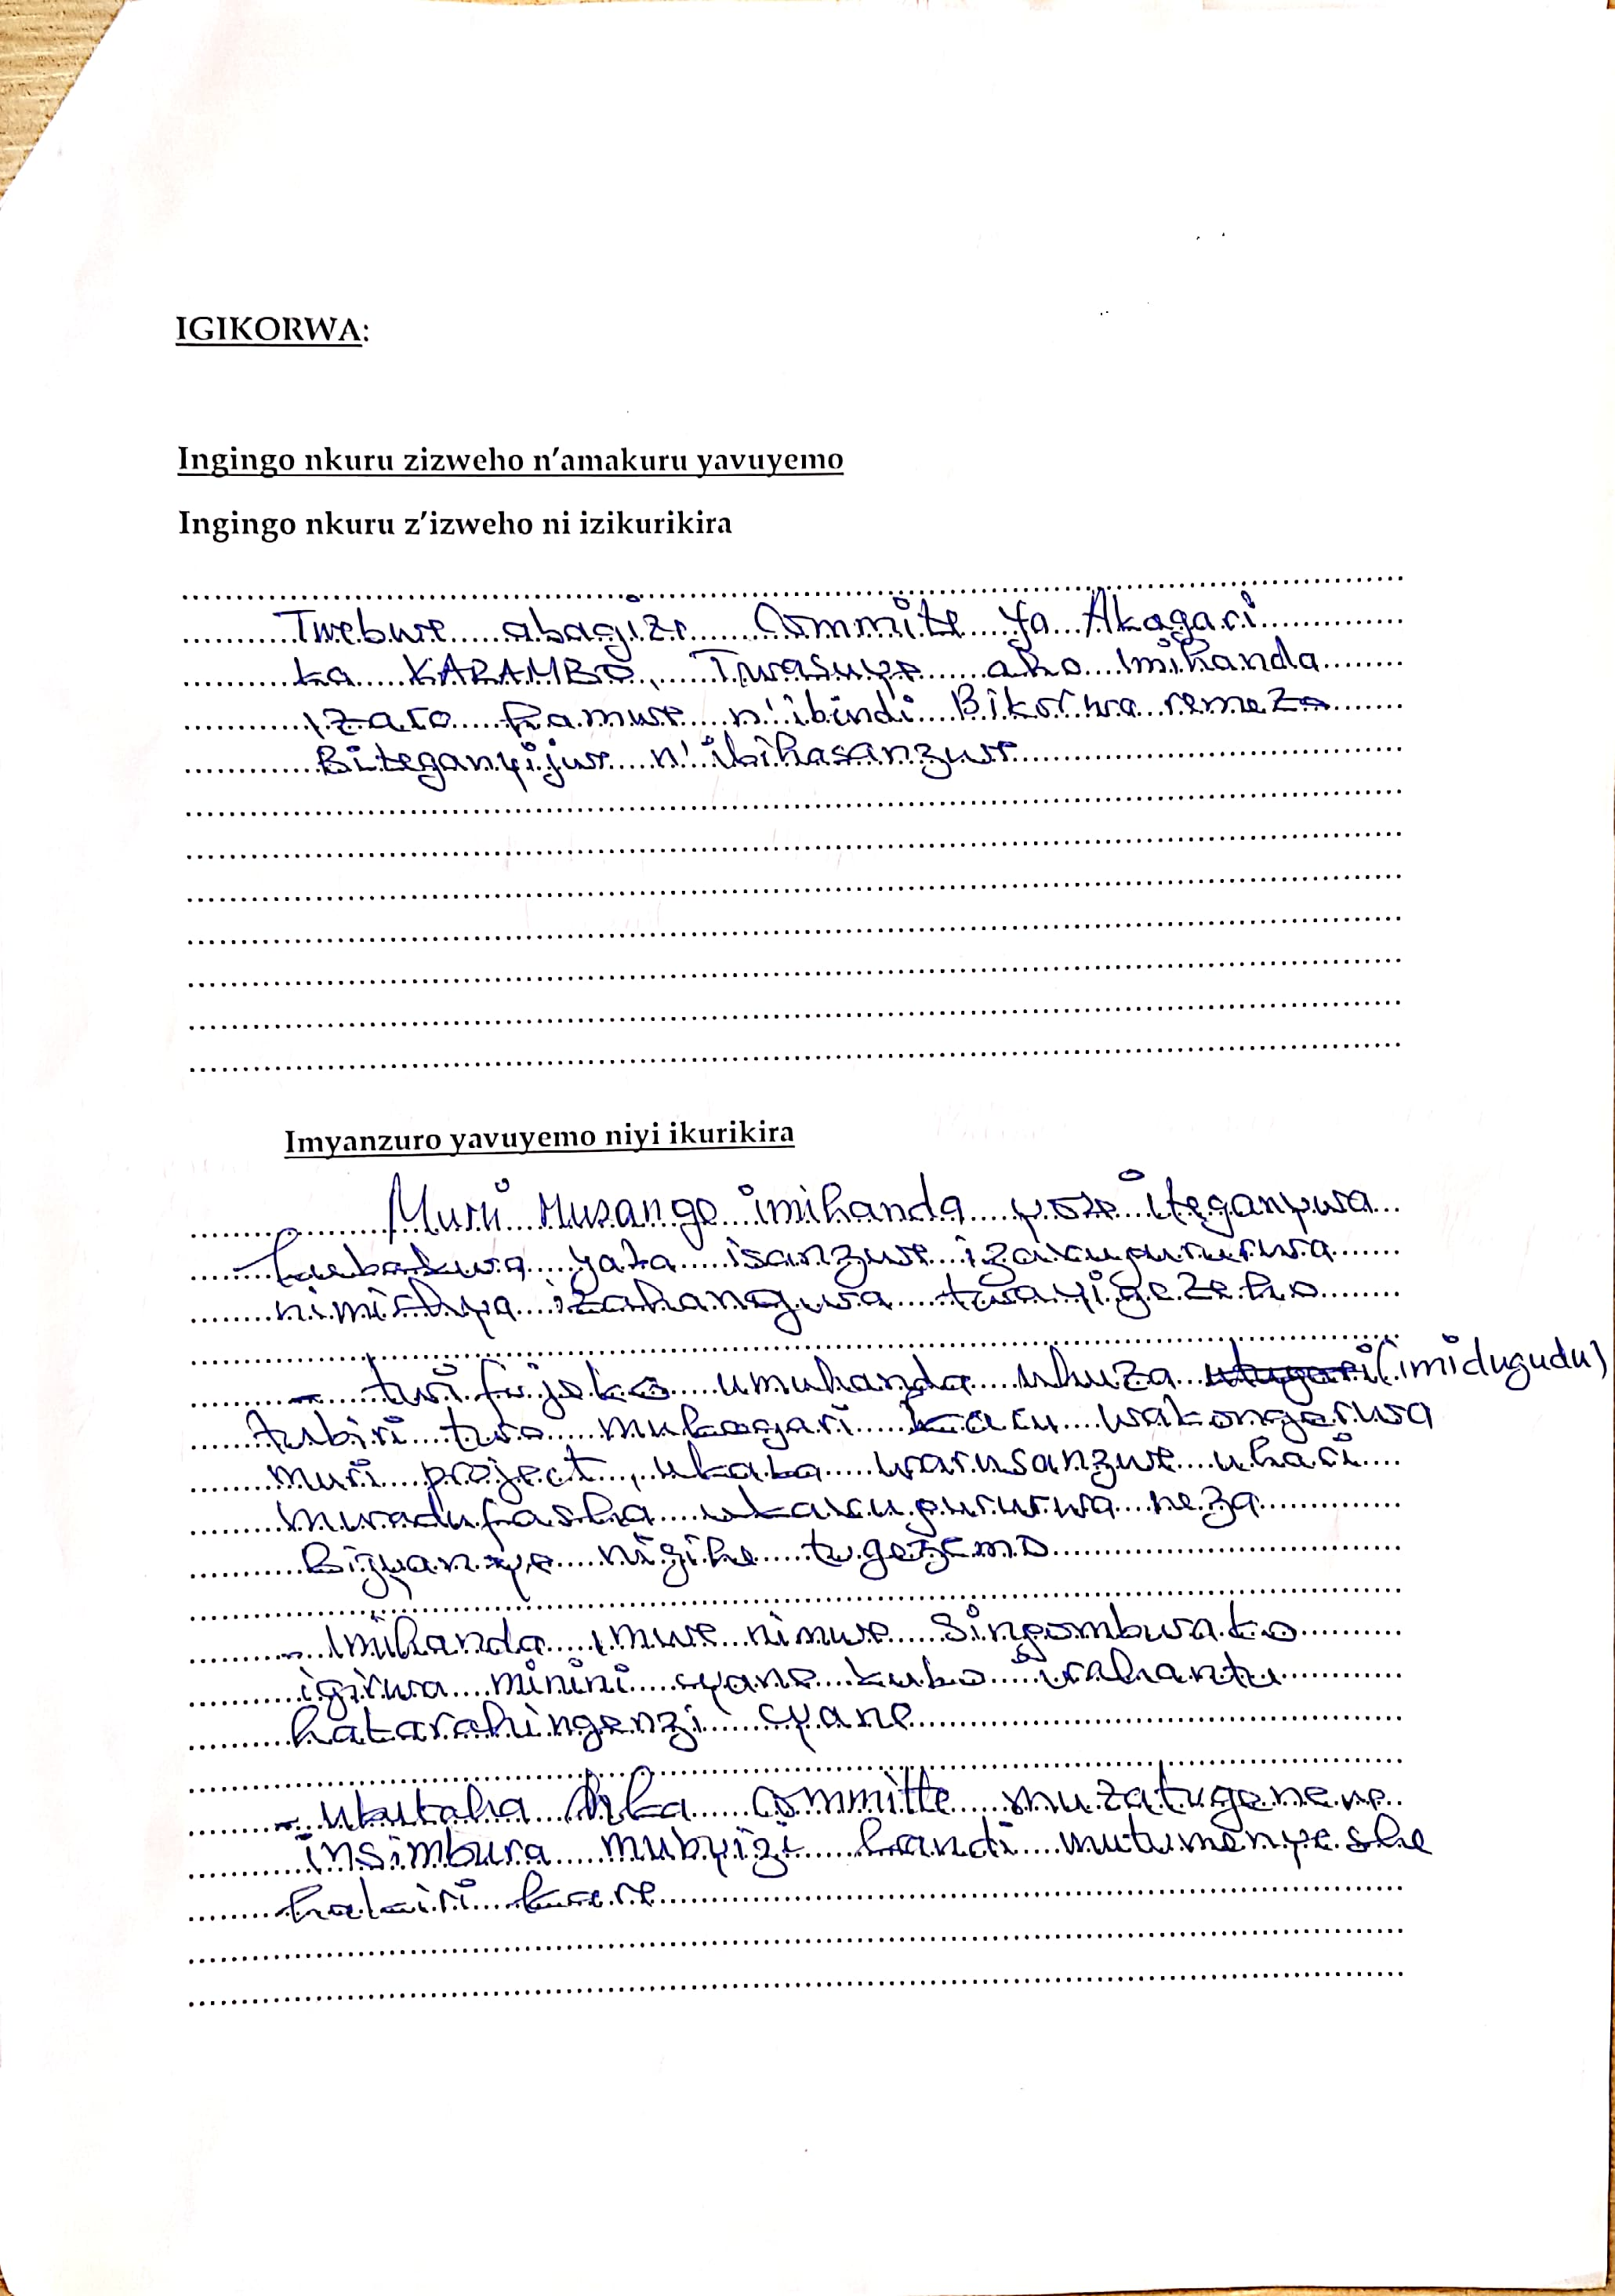 IGIKORWA:
Ingingo nkuru zizweho n'amakuru yavuyemo
Ingingo nkuru z'izweho ni izikurikira
Twebwe abagize Committe ya Akagari
ka KARAMBO, Twasuye aho Imihanda
izaro kamwe n'ibindi Bikorwa remezo
Biteganyijwe n'ibihasanzwe
Imyanzuro yavuyemo niyi ikurikira
Muri Rusange imihanda yose iteganywa
kubakwa yaba isanzwe izavupururwa
nimishya izahangwa twayigezeho
- twifujeko umuhanda uhuza (imidugudu)
tubiri two mukagari kacu wakongerwa
muri project, ukaba warusanzwe uhari
muradufasha ukavupururwa neza
Bijyanye nigihe tugezemo
- Imihanda imwe nimwe Singombwa ko
igirwa minini cyane kuko irahantu
hatarahingenzi cyane
- ubutaha committe muzatugenere
insimbura mubyizi kandi mutumenyeshe
hakiri kare